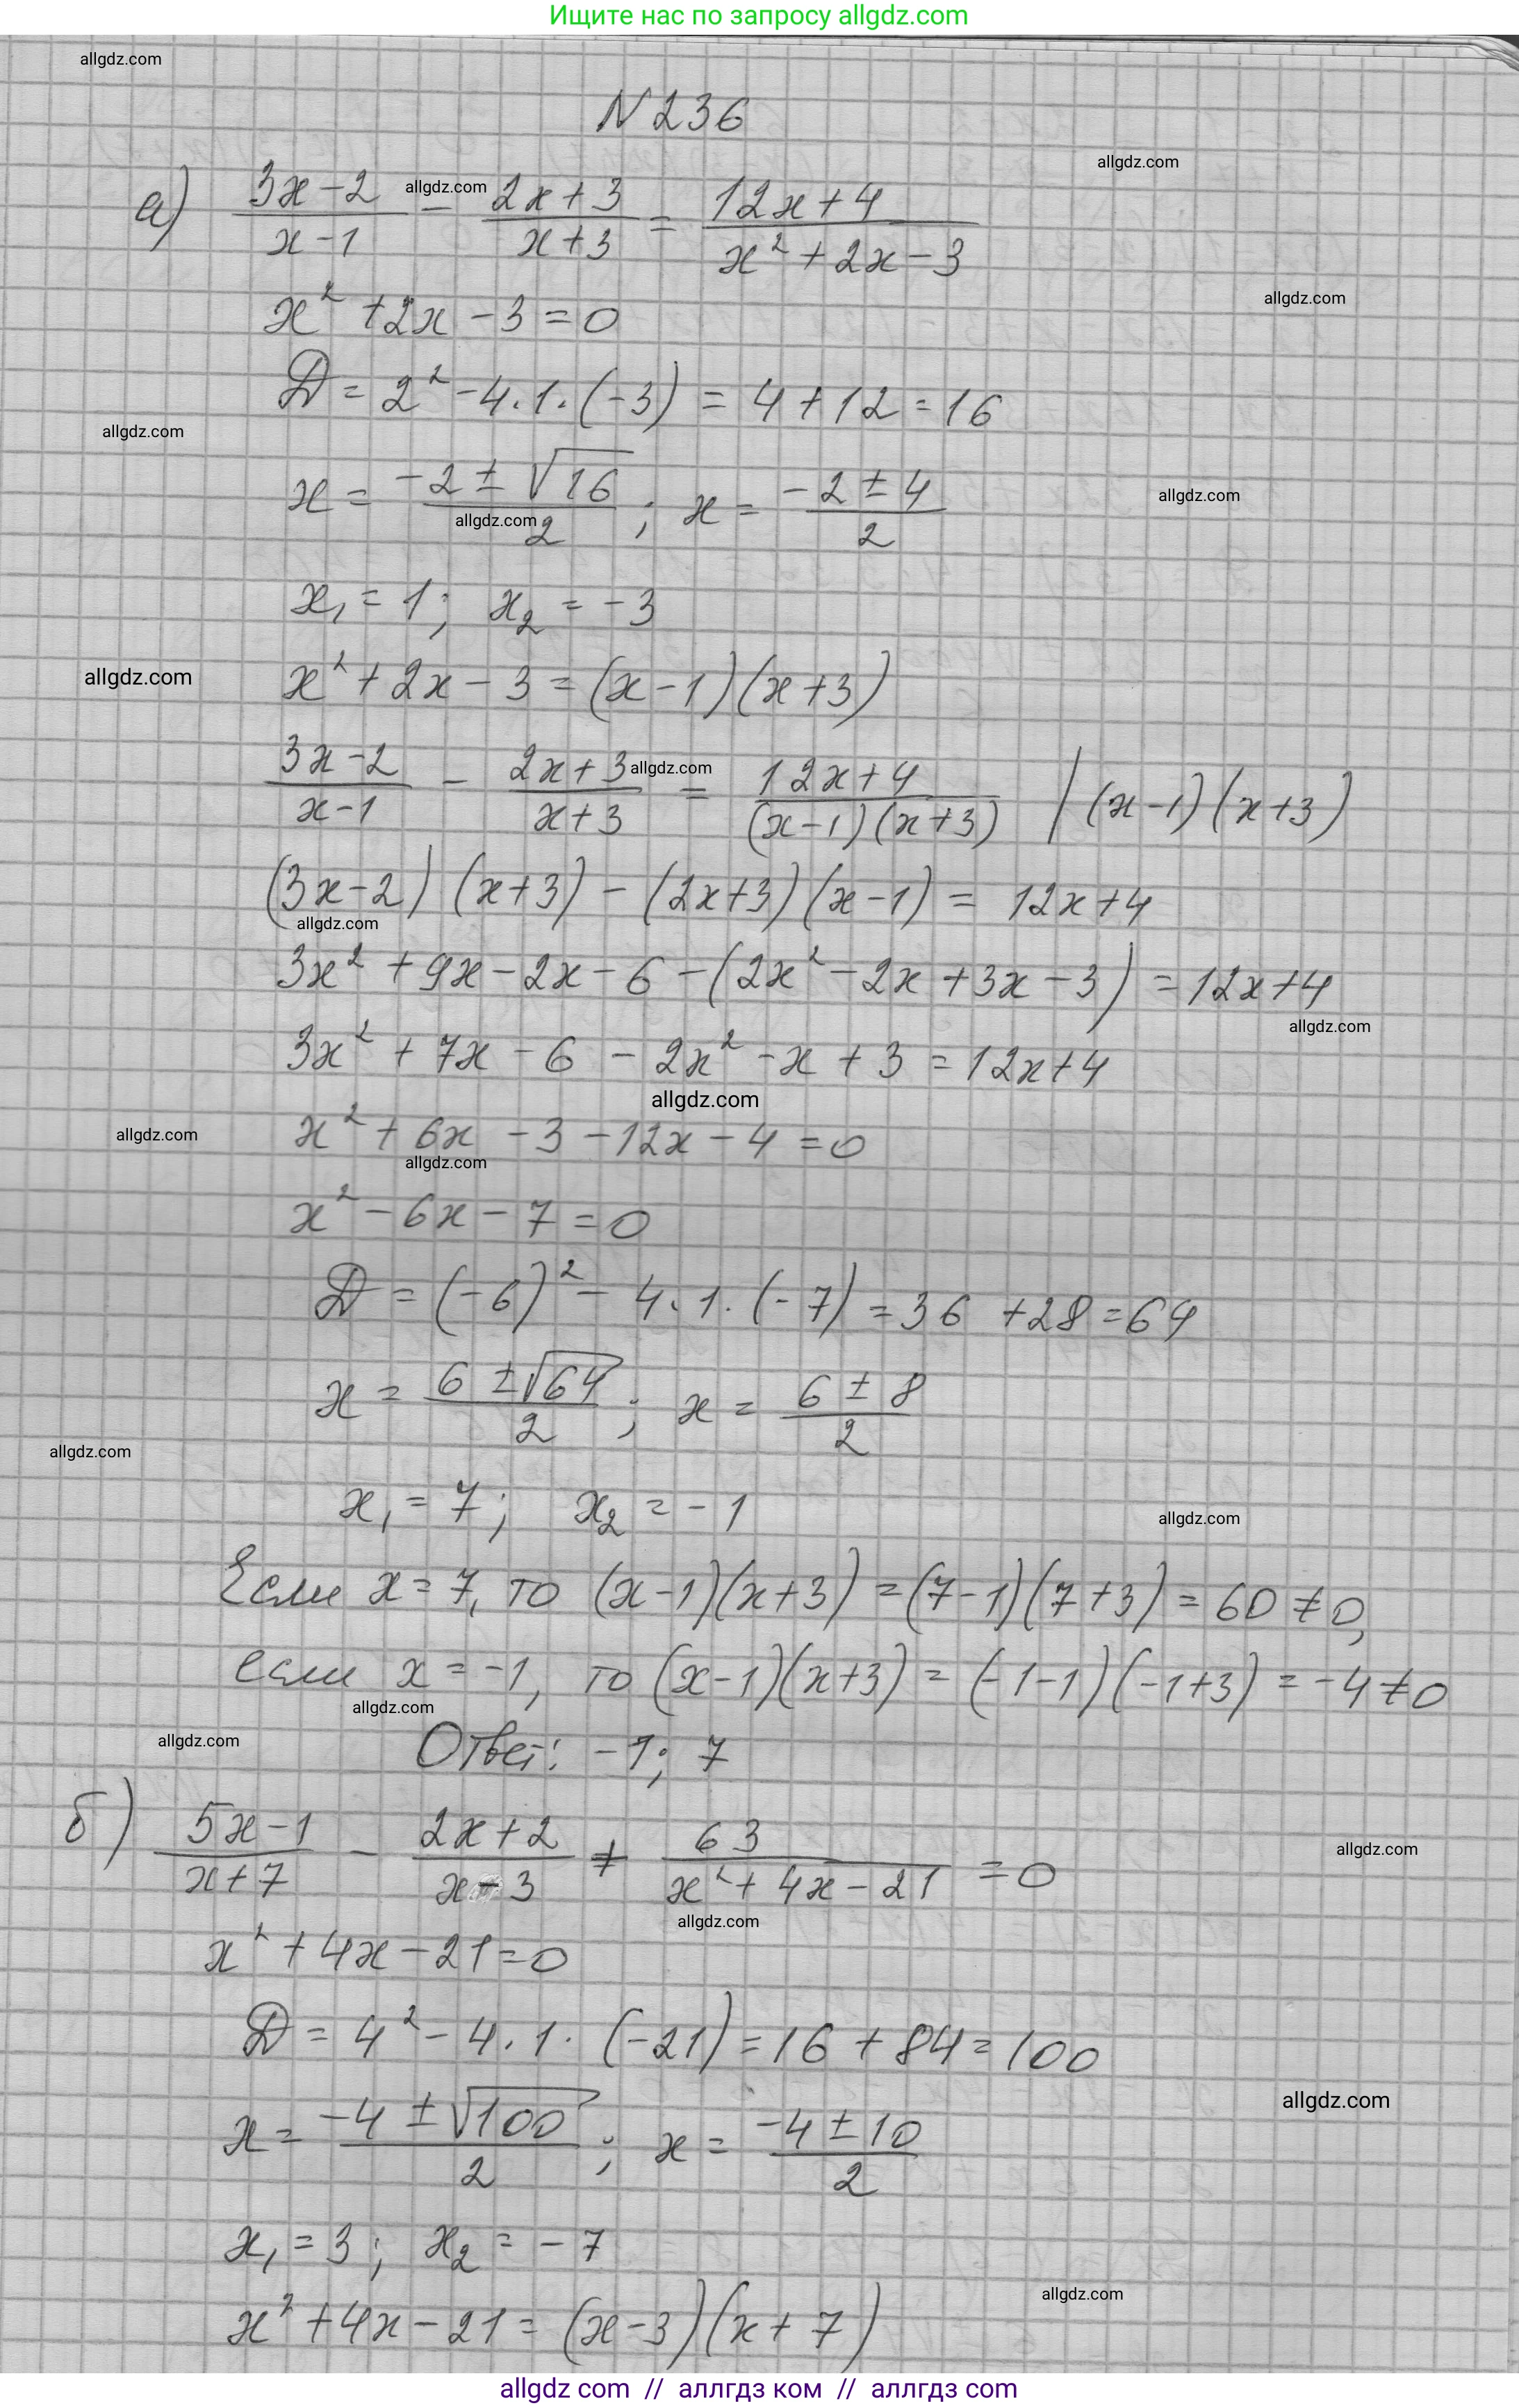 Ищите нас по запросу allgdz.com
allgdz.com
N 236
allgdz.com
а) (3x-2)/(x-1) - (2x+3)/(x+3) = (12x+4)/(x²+2x-3)
allgdz.com
allgdz.com
x²+2x-3=0
D = 2²-4·1·(-3) = 4+12=16
allgdz.com
x = (-2±√16)/2; x = (-2±4)/2
allgdz.com
allgdz.com
x₁ = 1; x₂ = -3
x²+2x-3=(x-1)(x+3)
allgdz.com
(3x-2)/(x-1) - (2x+3)/(x+3) = (12x+4)/((x-1)(x+3)) | (x-1)(x+3)
allgdz.com
(3x-2)(x+3)-(2x+3)(x-1) = 12x+4
allgdz.com
3x²+9x-2x-6-(2x²-2x+3x-3) = 12x+4
allgdz.com
3x²+7x-6-2x²-x+3=12x+4
allgdz.com
x²+6x-3-12x-4=0
allgdz.com
allgdz.com
x²-6x-7=0
D = (-6)²-4·1·(-7)=36+28=64
x = (6±√64)/2; x = (6±8)/2
allgdz.com
x₁ = 7; x₂ = -1
allgdz.com
Если x=7, то (x-1)(x+3)=(7-1)(7+3)=60≠0,
если x=-1, то (x-1)(x+3)=(-1-1)(-1+3)=-4≠0
allgdz.com
allgdz.com
Ответ: -1; 7
б) (5x-1)/(x+7) - (2x+2)/(x-3) + 63/(x²+4x-21) = 0
allgdz.com
allgdz.com
x²+4x-21=0
D = 4²-4·1·(-21)=16+84=100
allgdz.com
x = (-4±√100)/2; x = (-4±10)/2
x₁ = 3; x₂ = -7
allgdz.com
x²+4x-21=(x-3)(x+7)
allgdz com // аллгдз ком // аллгдз com